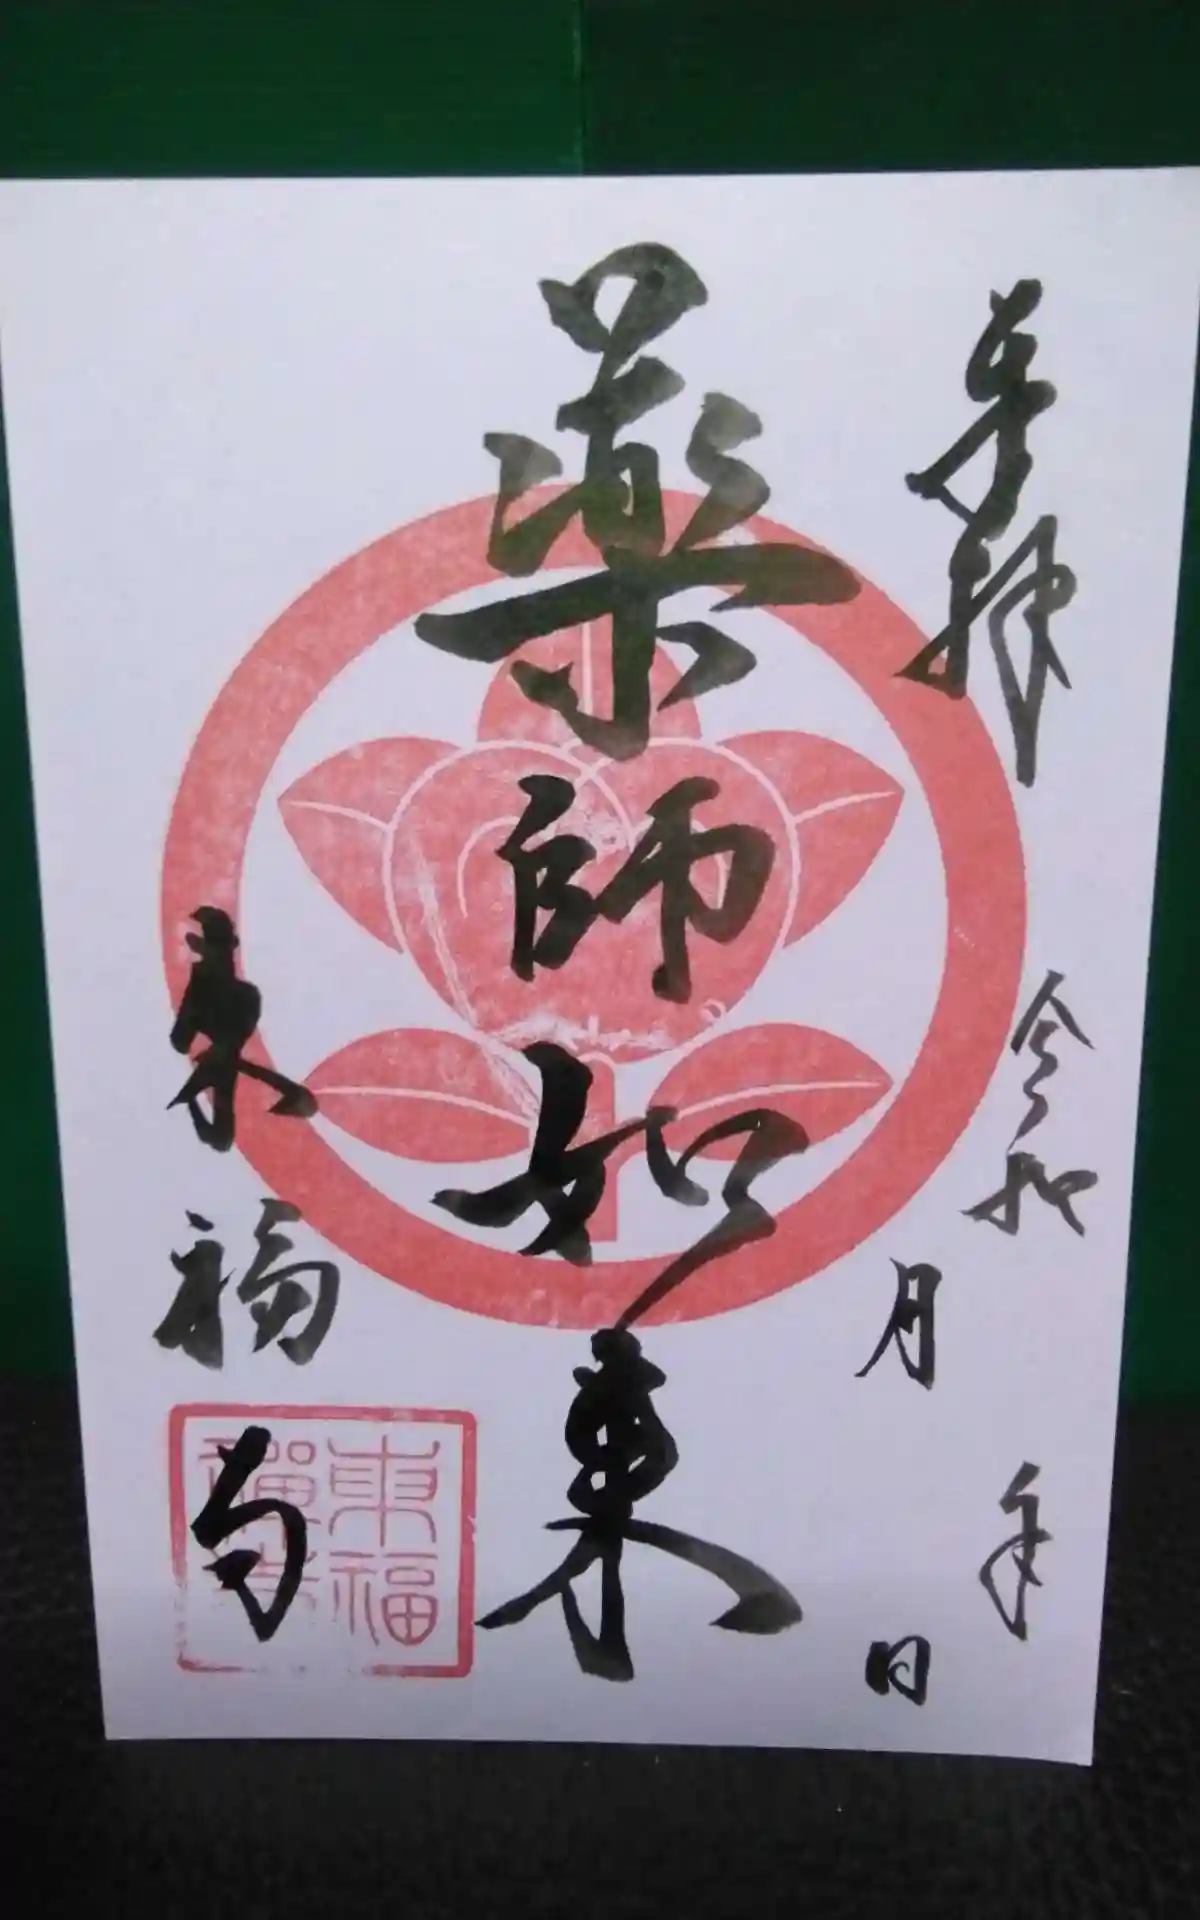 奉拝
令和 年
月 日
薬師如来
東福寺
東福
禅寺